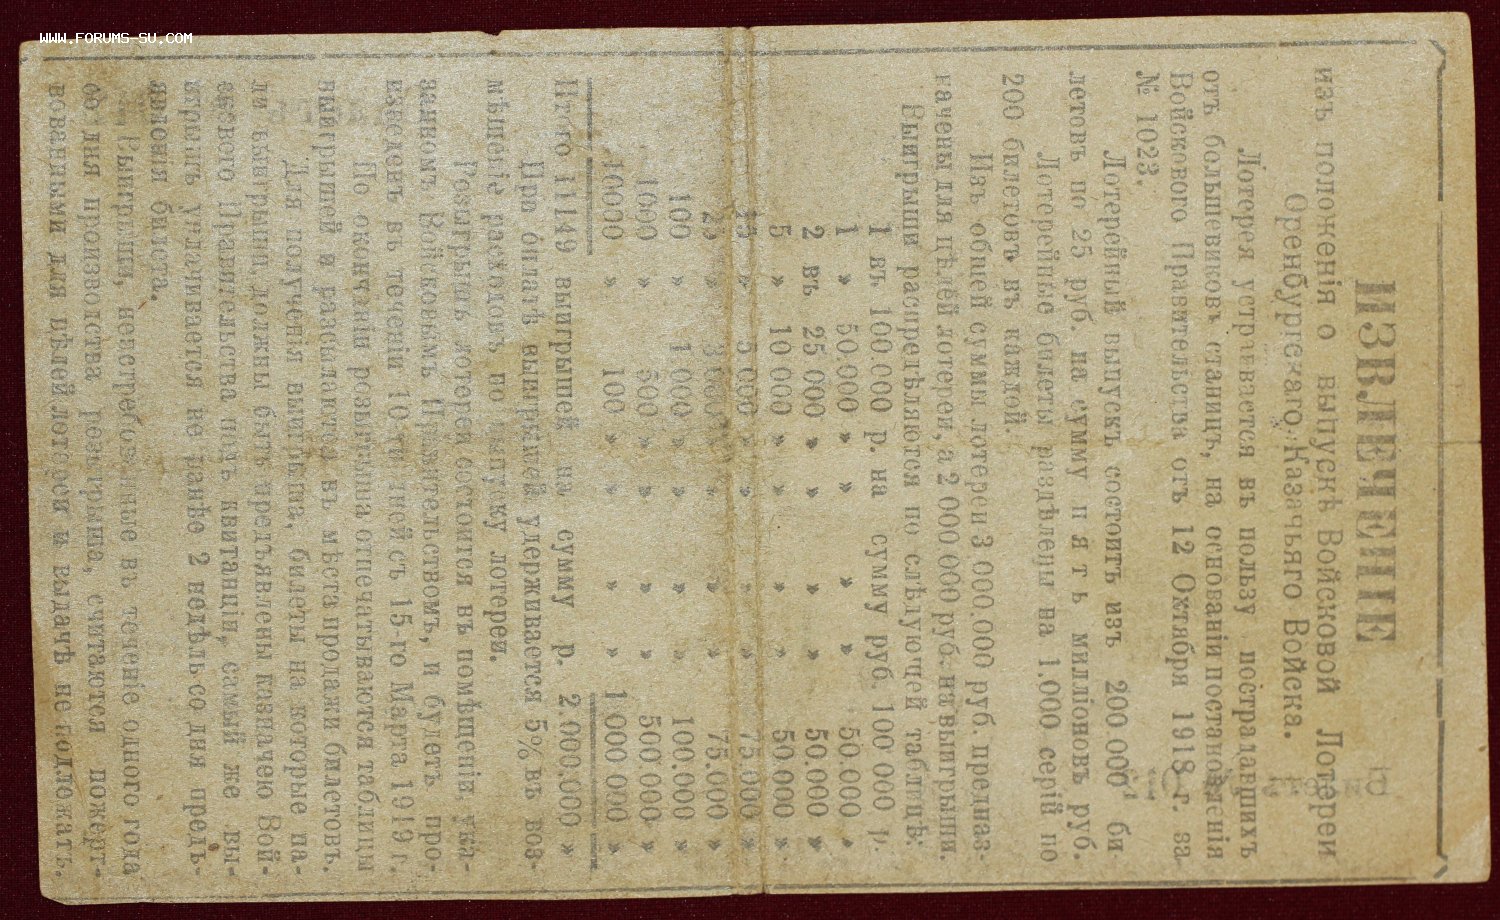 WWW.FORUMS-SU.COM
ИЗВЛЕЧЕНІЕ
изъ положенія о выпускѣ Войсковой Лотереи
Оренбургскаго Казачьяго Войска.
Лотерея устраивается въ пользу пострадавшихъ
отъ большевиковъ станицъ, на основаніи постановленія
Войскового Правительства отъ 12 Октября 1918 г. за
№ 1023.
Лотерейный выпускъ состоитъ изъ 200 000 би-
летовъ по 25 руб. на сумму пять милліоновъ руб.
Лотерейные билеты раздѣлены на 1,000 серій по
200 билетовъ въ каждой
Изъ общей суммы лотереи 3 000.000 руб. предназ-
начены для цѣлей лотереи, а 2 000 000 руб. на выигрыши.
Выигрыши распредѣляются по слѣдующей таблицѣ:
1 въ 100.000 р. на сумму руб. 100 000 р.
1 » 50.000 » » » » 50.000 »
2 въ 25 000 » » » » 50.000 »
5 » 10 000 » » » » 50 000 »
15 » 5 000 » » » » 75 000 »
25 » 3 000 » » » » 75.000 »
100 » 1 000 » » » » 100.000 »
1000 » 500 » » » » 500 000 »
10000 » 100 » » » » 1 000 000 »
Итого 11149 выигрышей на сумму р. 2.000.000 »
При оплатѣ выигрышей удерживается 5% въ воз-
мѣщеніе расходовъ по выпуску лотереи.
Розыгрышъ лотереи состоится въ помѣщеніи, ука-
занномъ Войсковымъ Правительствомъ, и будетъ про-
изведенъ въ теченіи 10-ти дней съ 15-го Марта 1919 г.
По окончаніи розыгрыша отпечатываются таблицы
выигрышей и разсылаются въ мѣста продажи билетовъ.
Для полученія выигрыша, билеты на которые па-
ли выигрыши, должны быть предъявлены казначею Вой-
скового Правительства подъ квитанціи, самый же вы-
игрышъ уплачивается не ранѣе 2 недѣль со дня предъ-
явленія билета.
Выигрыши, неистребованные въ теченіе одного года
со дня производства розыгрыша, считаются пожерт-
вованными для цѣлей лотереи и выдачѣ не подлежатъ.